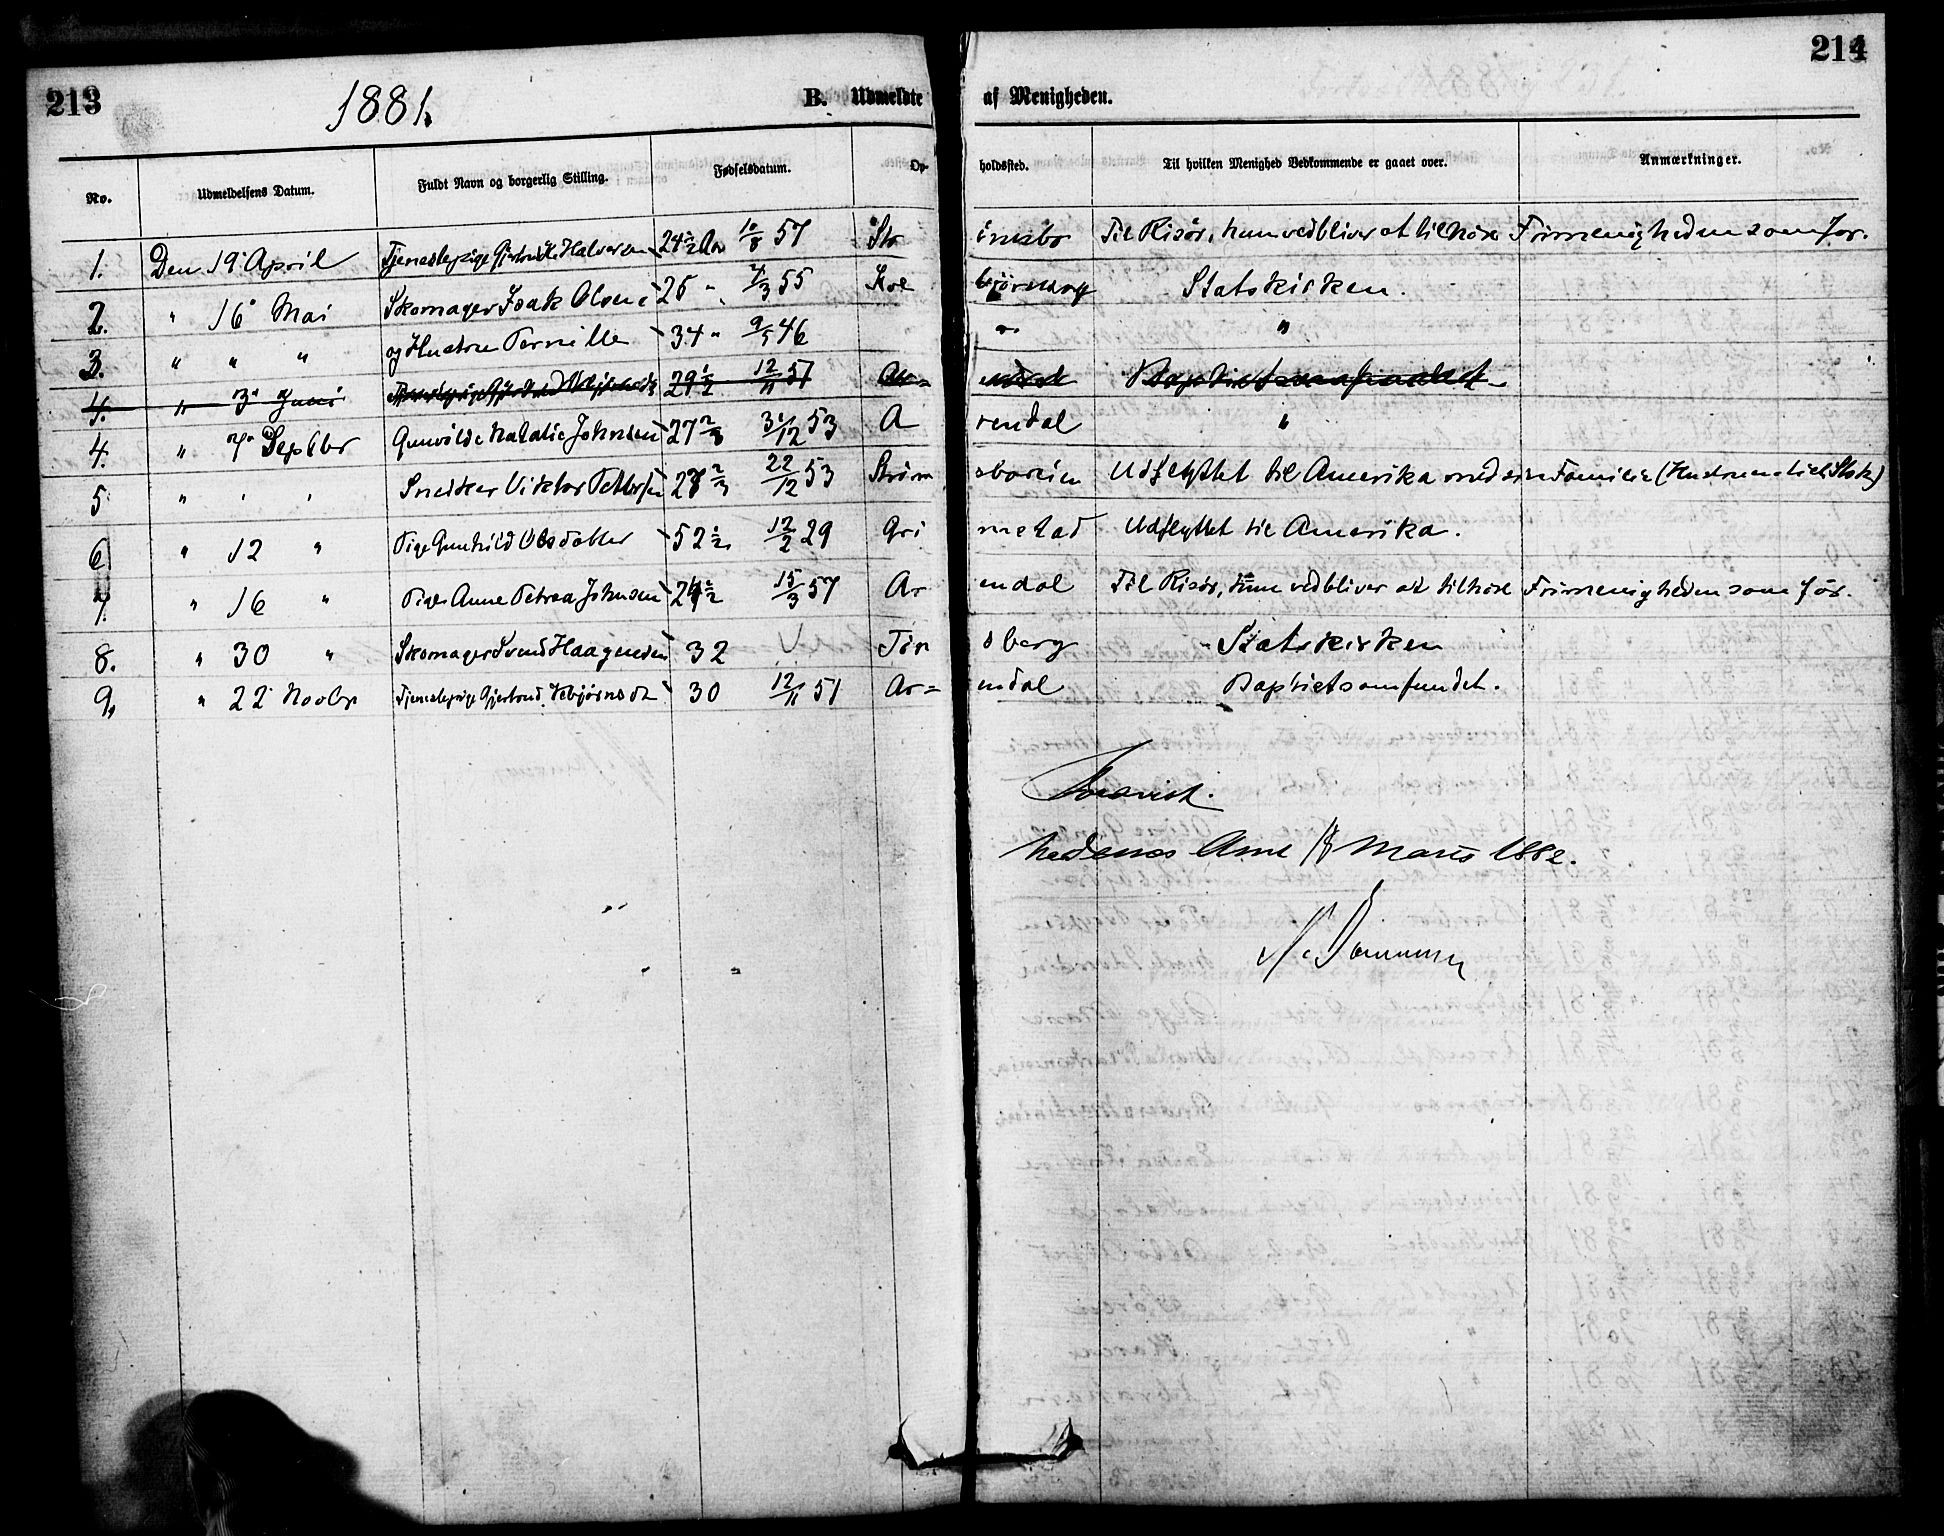 213 1881. B. Udmeldte af Menigheden. 214
No. Udmeldelsens Datum. Fuldt Navn og borgerlig Stilling. Fødselsdatum. Op- holdssted. Til hvilken Menighed Vedkommende er gaaet over. Anmærkninger.
1. Den 19 April Tjenestepige Gjertrude Halvorsen 24 1/2 Aar 10/8 57 Strömsbo Til Risør, hun vedbliver at tilhøre Frimenigheden som før.
2. " 16 Mai Skomager Isak Olsen 26 " 7/3 55 Kolbjørnsvig Statskirken.
3. " " " og Hustru Pernille 34 " 9/5 46 " "
4. " 3 Juni 29 1/2 12/11 51 Ar= endal Baptistsamfundet
4. " 7 Septbr Gunvilde Natalie Johnsen 27 2/3 31/12 53 Arendal "
5 " " " Snedker Viktor Pettersen 27 2/3 22/12 53 Strømsboeien Udflyttet til Amerika med sin Familie
6 " 12 " Pige Gunhild Olsdatter 52 1/2 12/2 29 Grimstad Udflyttet til Amerika.
7. " 16 " Pige Anne Petrea Johnsen 24 1/2 15/3 57 Arendal Til Risør, hun vedbliver at tilhøre Frimenigheden som før.
8. " 30 " Skomager Svend Haagensen 32 Tönsberg Statskirken
9. " 22 Novbr Tjenestepige Gjertrud Kebjørnsdt 30 12/11 51 Ar= endal Baptistsamfundet.
Nedenes Amt 18 Marts 1882.